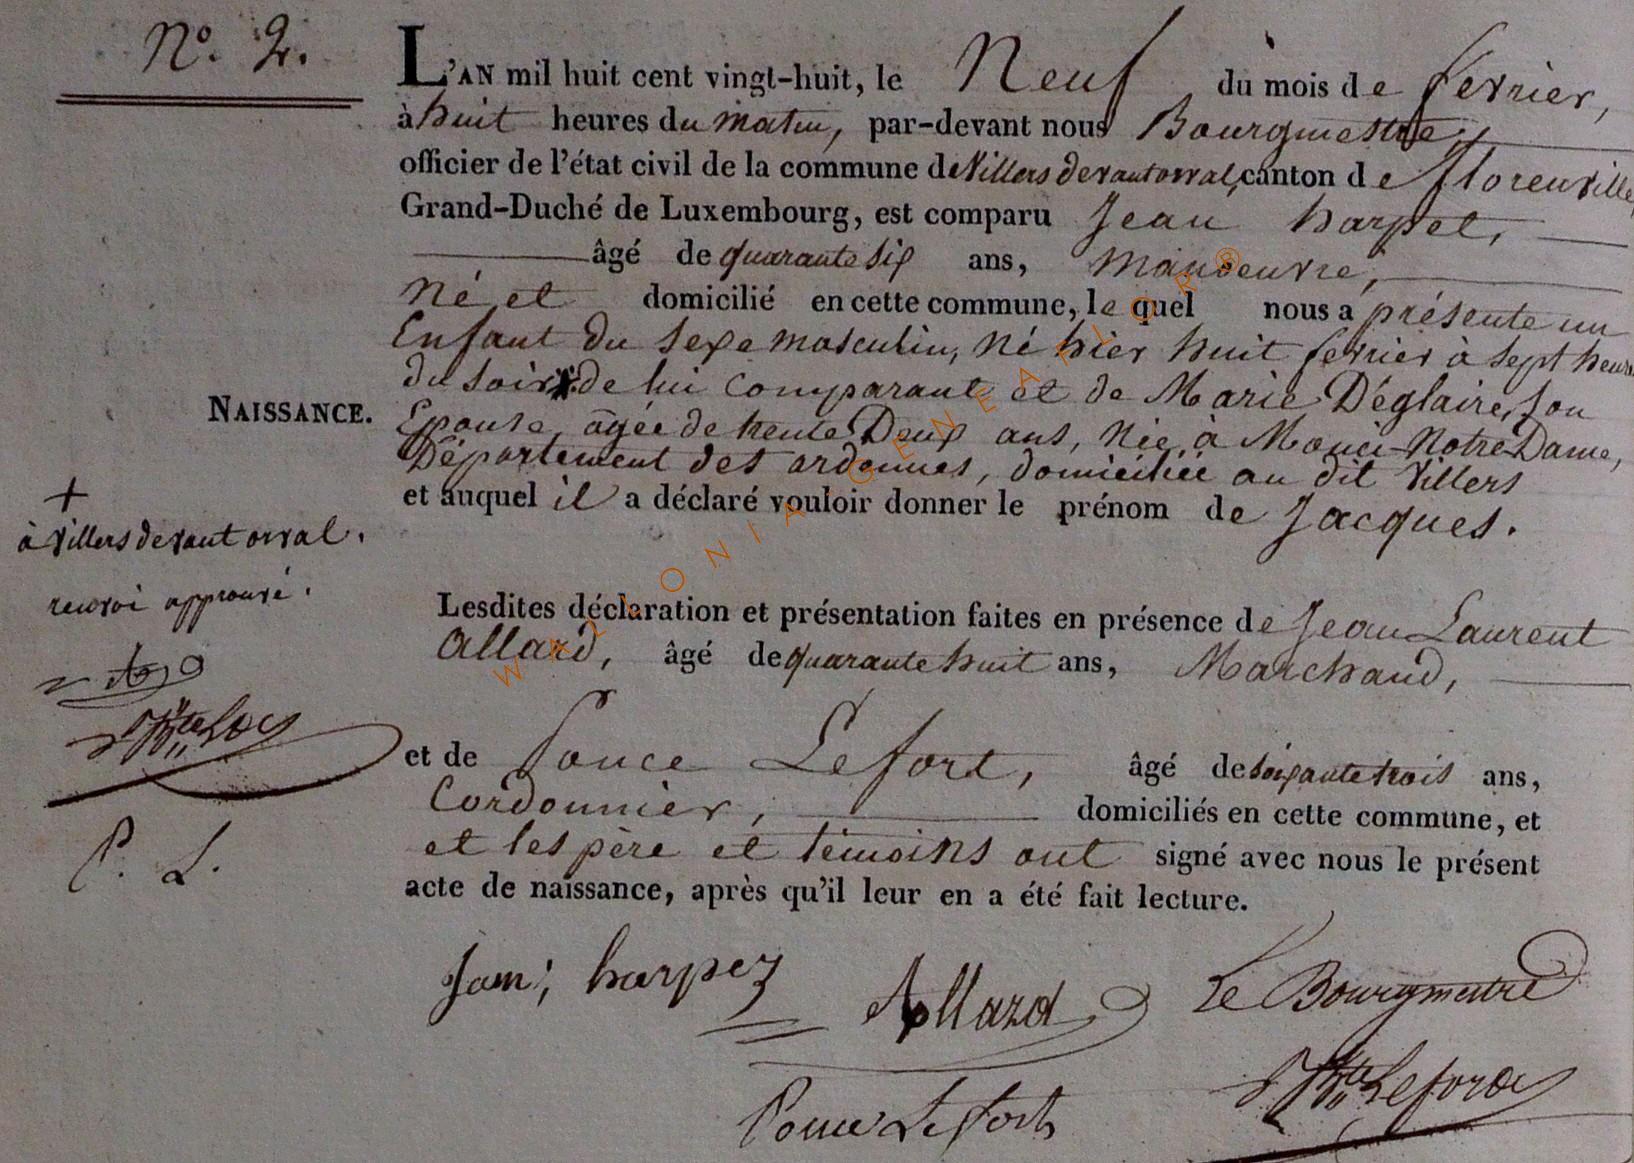 N.o 2.
L'AN mil huit cent vingt-huit, le Neuf du mois de fevrier,
à huit heures du matin, par-devant nous Bourgmestre,
officier de l'état civil de la commune de Villers devant orval, canton de florenville
Grand-Duché de Luxembourg, est comparu Jean harpet,
âgé de quarante six ans, manoeuvre,
Né et domicilié en cette commune, le quel nous a présente un
Enfant du sexe masculin, né hier huit fevrier à sept heures
du soir de lui comparant et de Marie Déglaire, son
Epouse, agée de trente Deux ans, née à Mouci-Notre-Dame,
Département des ardennes, domiciliée au dit Villers
et auquel il a déclaré vouloir donner le prénom de Jacques.
NAISSANCE.
+
à Villers devant orval.
renvoi approuvé.
P. L.
Lesdites déclaration et présentation faites en présence de Jean Laurent
Allard, âgé de quarante huit ans, Marchand,
et de Ponce Lefort, âgé de soixante trois ans,
Cordonnier, domiciliés en cette commune, et
et les père et témoins ont signé avec nous le présent
acte de naissance, après qu'il leur en a été fait lecture.
harpez
Allard
Le Bourgmestre
Ponce Lefort
WALLONIA GENEAFLOR®